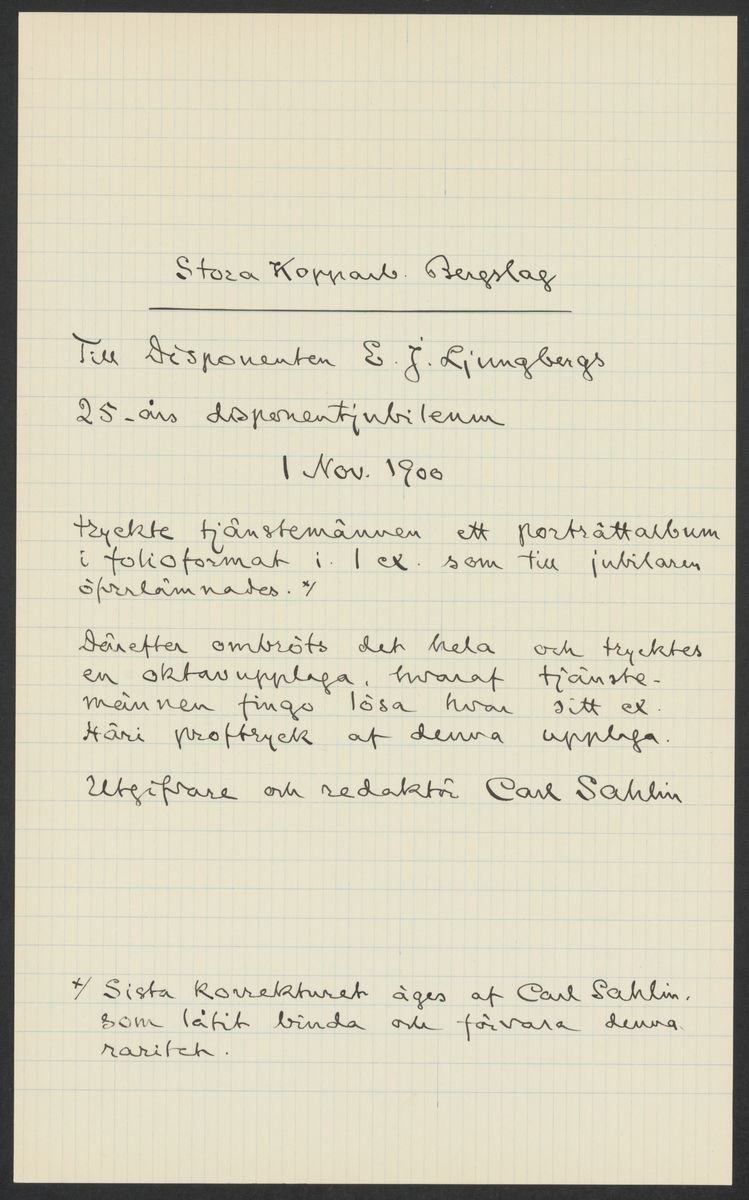 Stora Kopparb. Bergslag
Till Disponenten E. J. Ljungbergs
25-års disponentjubileum
1 Nov. 1900
tryckte tjänstemännen ett porträttalbum
i folioformat i. 1 ex. som till jubilaren
öfverlämnades. x/
Därefter ombröts det hela och trycktes
en oktavupplaga, hvaraf tjänste-
männen fingo lösa hvar sitt ex.
Häri proftryck af denna upplaga.
Utgifvare och redaktör Carl Sahlin
x/ Sista korrekturet äges af Carl Sahlin,
som låtit binda och förvara denna
raritet.